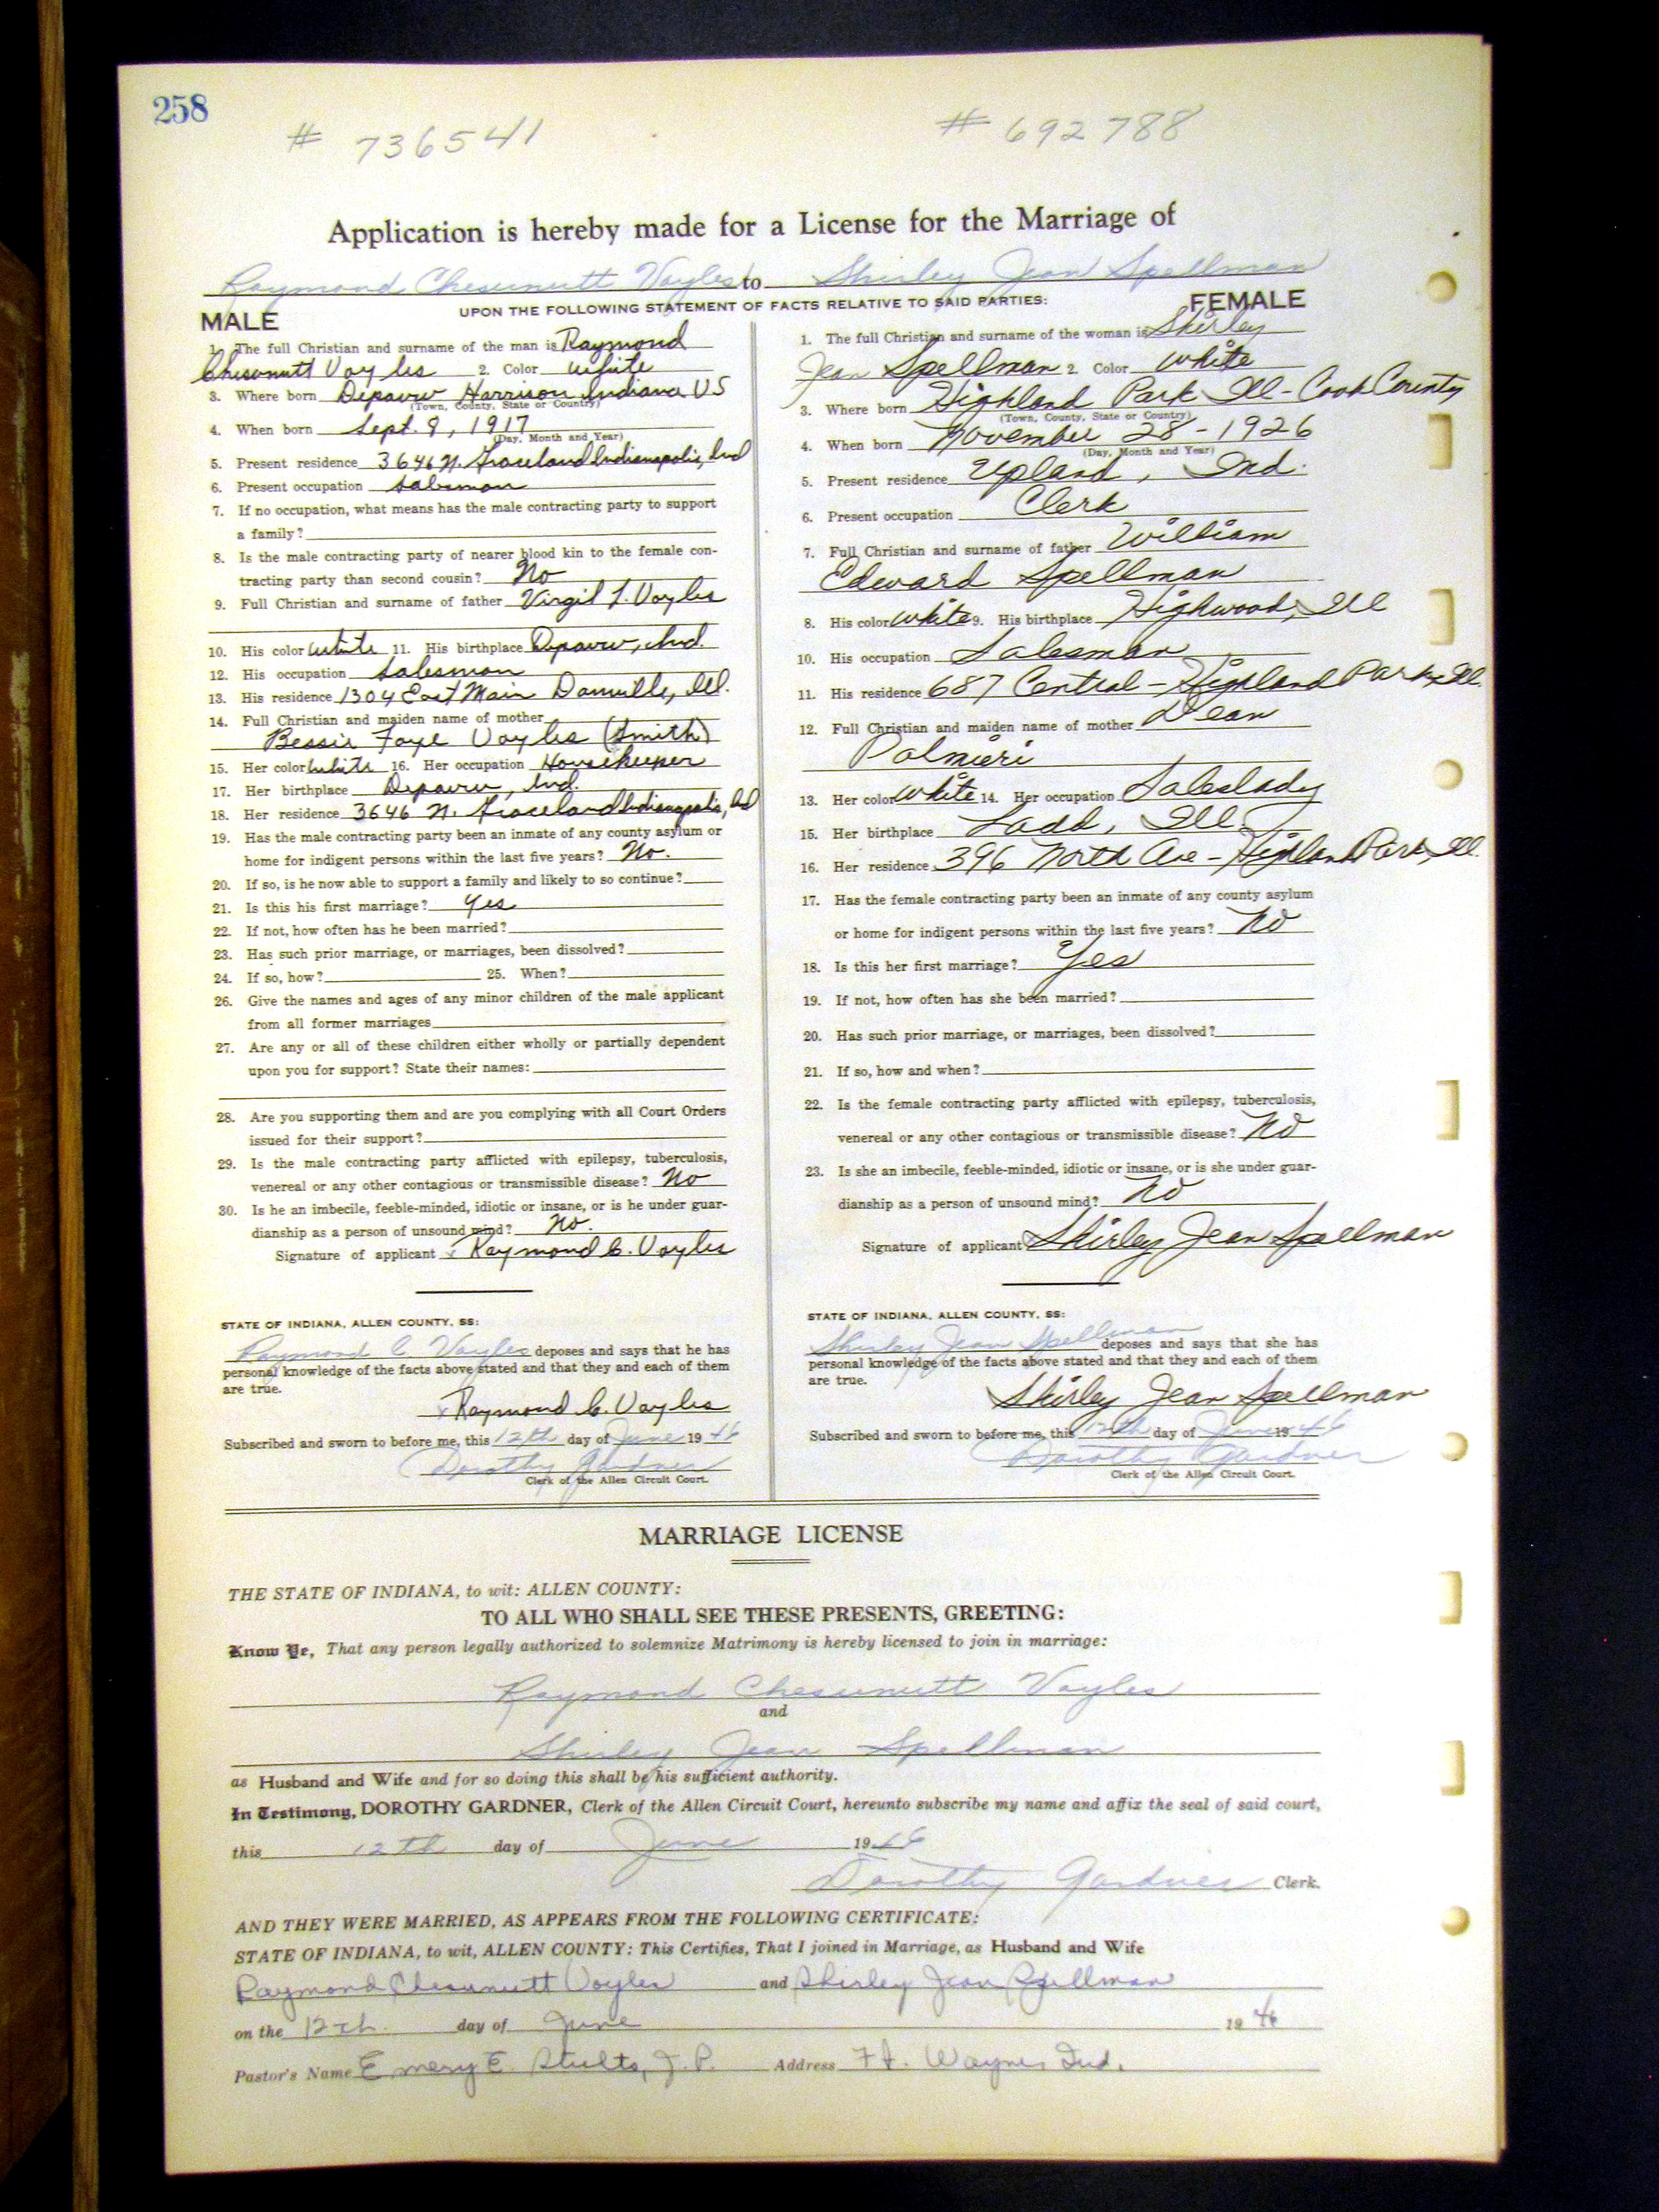 258
# 736541 # 692788
Application is hereby made for a License for the Marriage of
Raymond Chesunutt Voyles to Shirley Jean Spellman
UPON THE FOLLOWING STATEMENT OF FACTS RELATIVE TO SAID PARTIES:
MALE
1. The full Christian and surname of the man is Raymond
Chesunutt Voyles 2. Color White
3. Where born Depauw Harrison Indiana US
(Town, County, State or Country)
4. When born Sept. 9, 1917
(Day, Month and Year)
5. Present residence 3646 N. Graceland Indianapolis, Ind
6. Present occupation Salesman
7. If no occupation, what means has the male contracting party to support
a family?
8. Is the male contracting party of nearer blood kin to the female con-
tracting party than second cousin? No
9. Full Christian and surname of father Virgil T. Voyles
10. His color White 11. His birthplace Depauw, Ind.
12. His occupation Salesman
13. His residence 1304 East Main Danville, Ill.
14. Full Christian and maiden name of mother
Bessie Faye Voyles (Smith)
15. Her color White 16. Her occupation Housekeeper
17. Her birthplace Depauw, Ind.
18. Her residence 3646 N. Graceland Indianapolis, Ind
19. Has the male contracting party been an inmate of any county asylum or
home for indigent persons within the last five years? No.
20. If so, is he now able to support a family and likely to so continue?
21. Is this his first marriage? Yes
22. If not, how often has he been married?
23. Has such prior marriage, or marriages, been dissolved?
24. If so, how? 25. When?
26. Give the names and ages of any minor children of the male applicant
from all former marriages
27. Are any or all of these children either wholly or partially dependent
upon you for support? State their names:
28. Are you supporting them and are you complying with all Court Orders
issued for their support?
29. Is the male contracting party afflicted with epilepsy, tuberculosis,
venereal or any other contagious or transmissible disease? No
30. Is he an imbecile, feeble-minded, idiotic or insane, or is he under guar-
dianship as a person of unsound mind? No.
Signature of applicant x Raymond C. Voyles
STATE OF INDIANA, ALLEN COUNTY, SS:
Raymond C. Voyles deposes and says that he has
personal knowledge of the facts above stated and that they and each of them
are true.
x Raymond C. Voyles
Subscribed and sworn to before me, this 12th day of June 19 46
Dorothy Gardner
Clerk of the Allen Circuit Court.
FEMALE
1. The full Christian and surname of the woman is Shirley
Jean Spellman 2. Color White
3. Where born Highland Park Ill - Cook County
(Town, County, State or Country)
4. When born November 28 - 1926
(Day, Month and Year)
5. Present residence Upland, Ind.
6. Present occupation Clerk
7. Full Christian and surname of father William
Edward Spellman
8. His color White 9. His birthplace Highwood, Ill
10. His occupation Salesman
11. His residence 687 Central - Highland Park, Ill.
12. Full Christian and maiden name of mother Dean
Palmieri
13. Her color White 14. Her occupation Saleslady
15. Her birthplace Ladd, Ill.
16. Her residence 396 North Ave - Highland Park, Ill.
17. Has the female contracting party been an inmate of any county asylum
or home for indigent persons within the last five years? No
18. Is this her first marriage? Yes
19. If not, how often has she been married?
20. Has such prior marriage, or marriages, been dissolved?
21. If so, how and when?
22. Is the female contracting party afflicted with epilepsy, tuberculosis,
venereal or any other contagious or transmissible disease? No
23. Is she an imbecile, feeble-minded, idiotic or insane, or is she under guar-
dianship as a person of unsound mind? No
Signature of applicant x Shirley Jean Spellman
STATE OF INDIANA, ALLEN COUNTY, SS:
Shirley Jean Spellman deposes and says that she has
personal knowledge of the facts above stated and that they and each of them
are true.
Shirley Jean Spellman
Subscribed and sworn to before me, this 12th day of June 19 46
Dorothy Gardner
Clerk of the Allen Circuit Court.
MARRIAGE LICENSE
THE STATE OF INDIANA, to wit: ALLEN COUNTY:
TO ALL WHO SHALL SEE THESE PRESENTS, GREETING:
Know Ye, That any person legally authorized to solemnize Matrimony is hereby licensed to join in marriage:
Raymond Chesunutt Voyles
and
Shirley Jean Spellman
as Husband and Wife and for so doing this shall be his sufficient authority.
In Testimony, DOROTHY GARDNER, Clerk of the Allen Circuit Court, hereunto subscribe my name and affix the seal of said court,
this 12th day of June 19 46
Dorothy Gardner Clerk.
AND THEY WERE MARRIED, AS APPEARS FROM THE FOLLOWING CERTIFICATE:
STATE OF INDIANA, to wit, ALLEN COUNTY: This Certifies, That I joined in Marriage, as Husband and Wife
Raymond Chesunutt Voyles and Shirley Jean Spellman
on the 12th. day of June 19 46
Pastor's Name Emery E. Stults, J.P. Address Ft. Wayne, Ind.